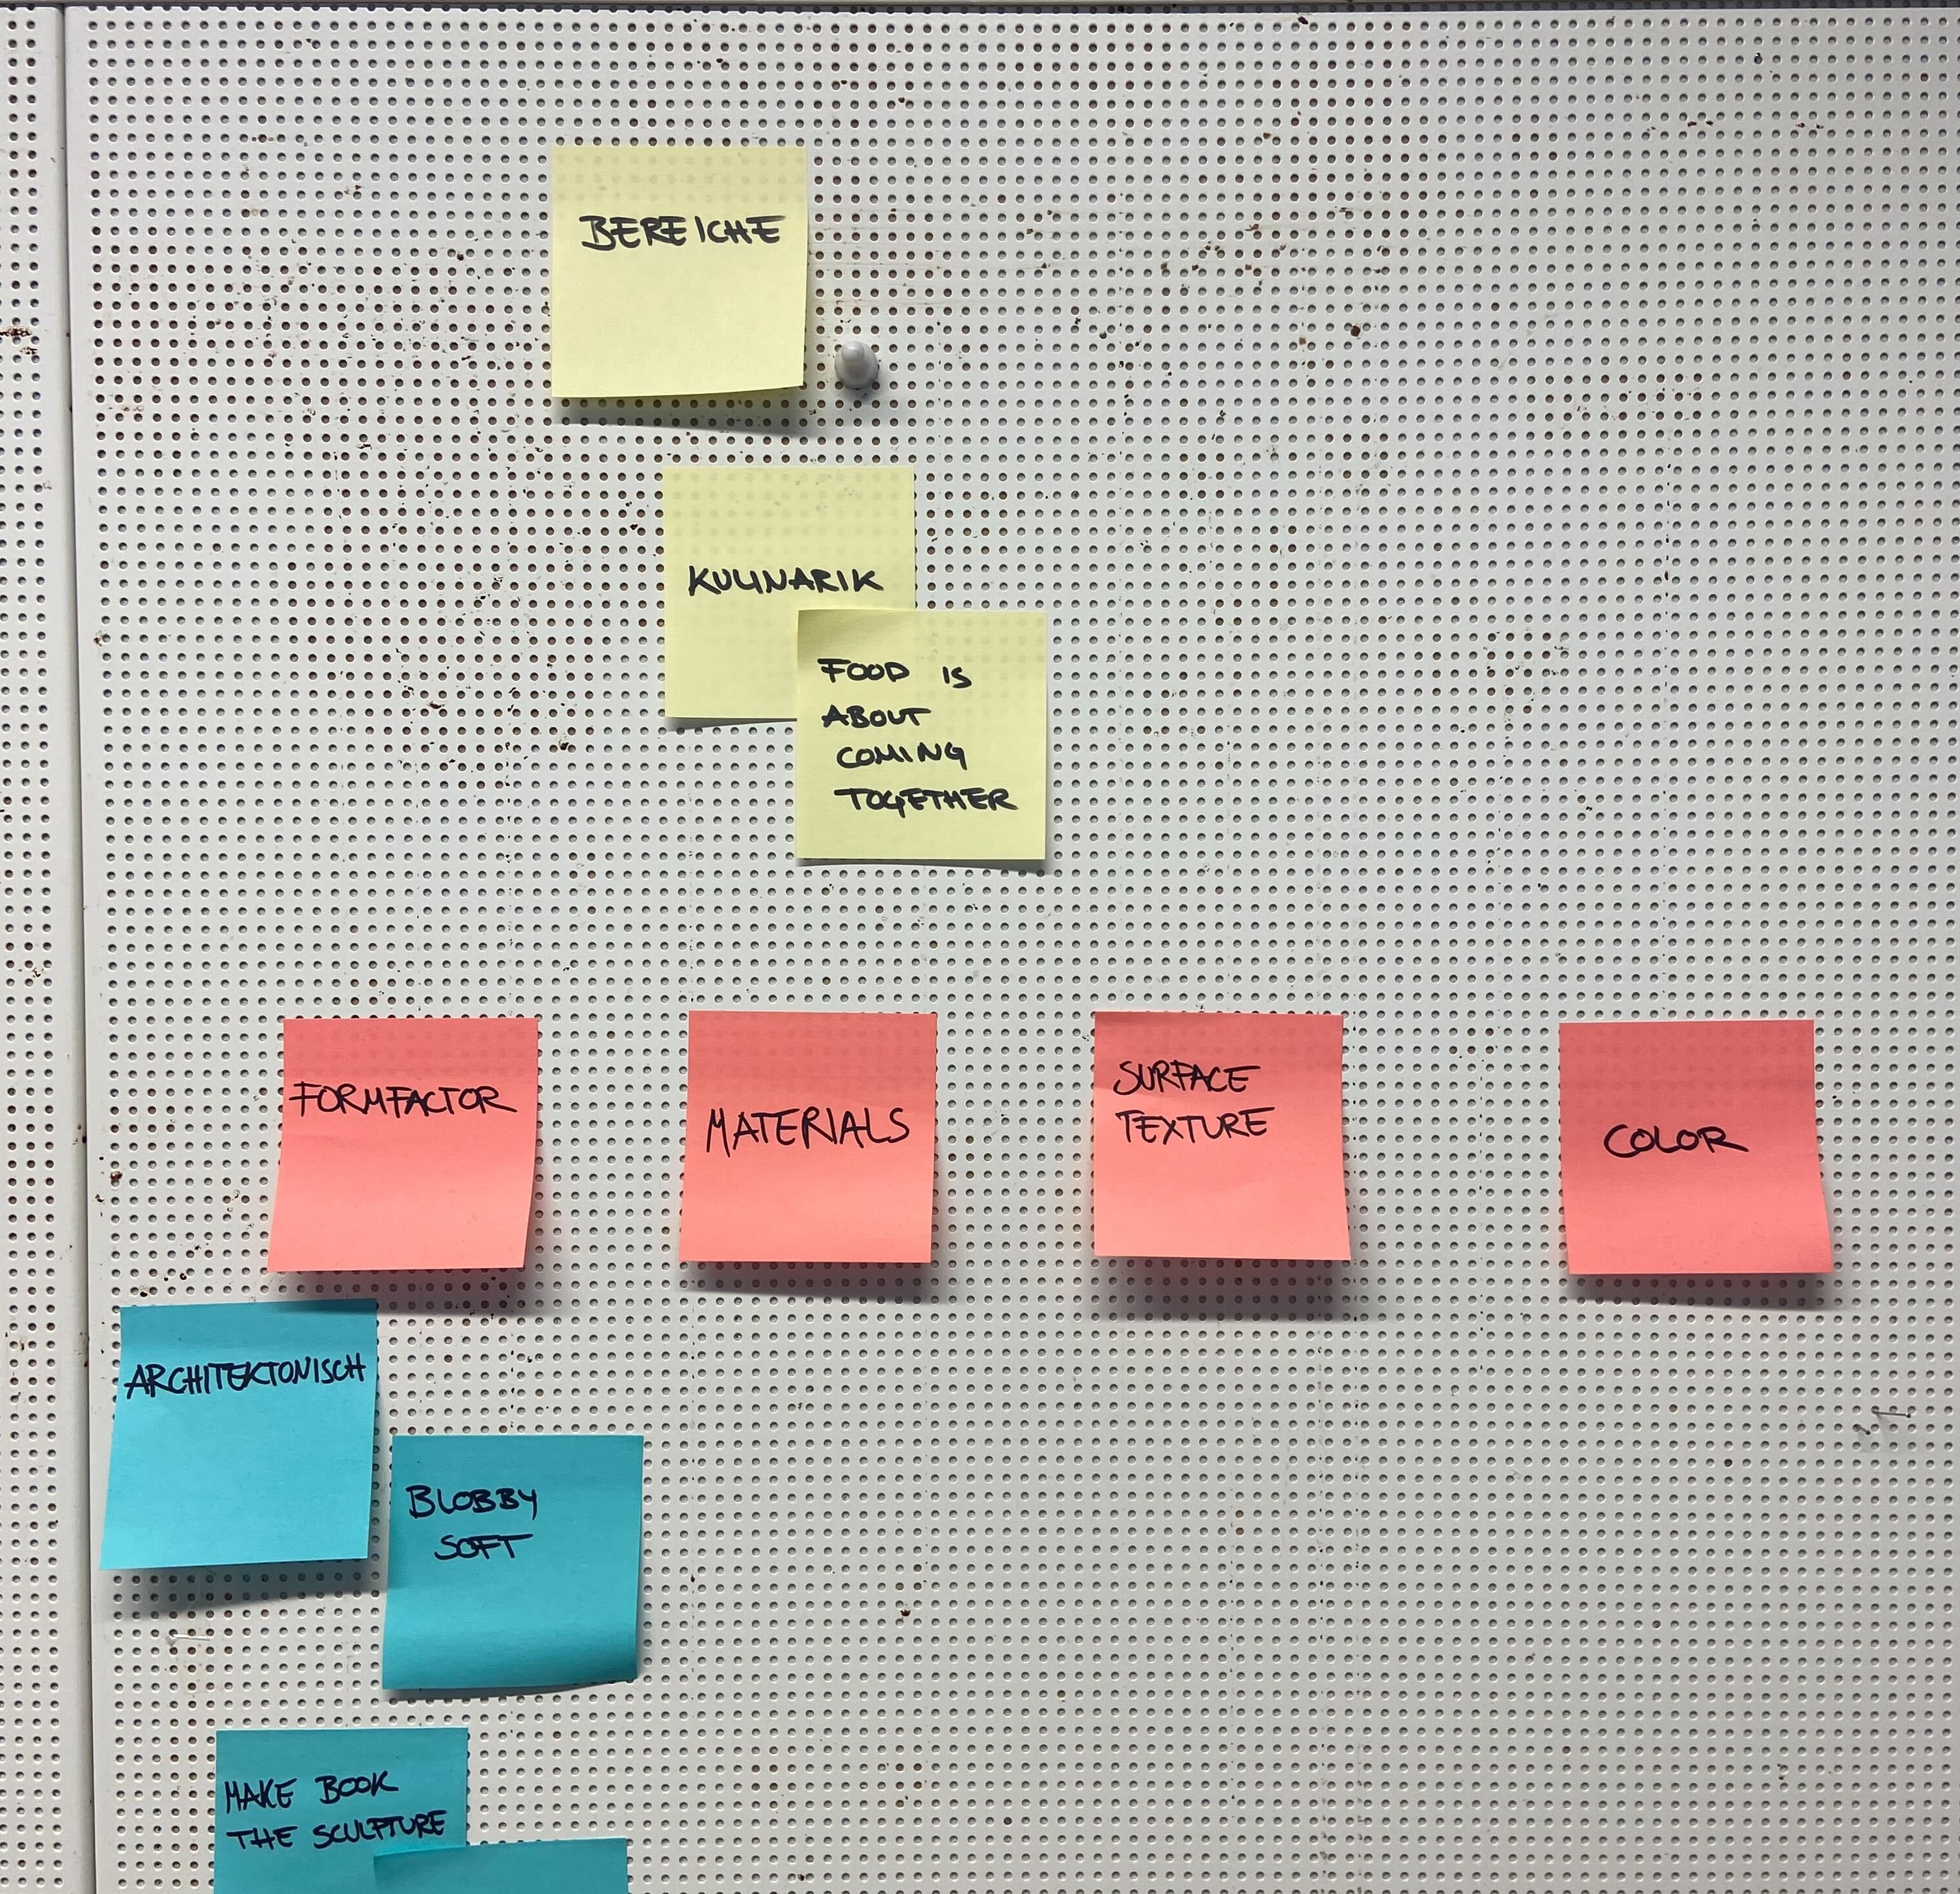 BEREICHE
KULINARIK
FOOD IS
ABOUT
COMING
TOGETHER
FORMFACTOR
MATERIALS
SURFACE
TEXTURE
COLOR
ARCHITEKTONISCH
BLOBBY
SOFT
MAKE BOOK
THE SCULPTURE